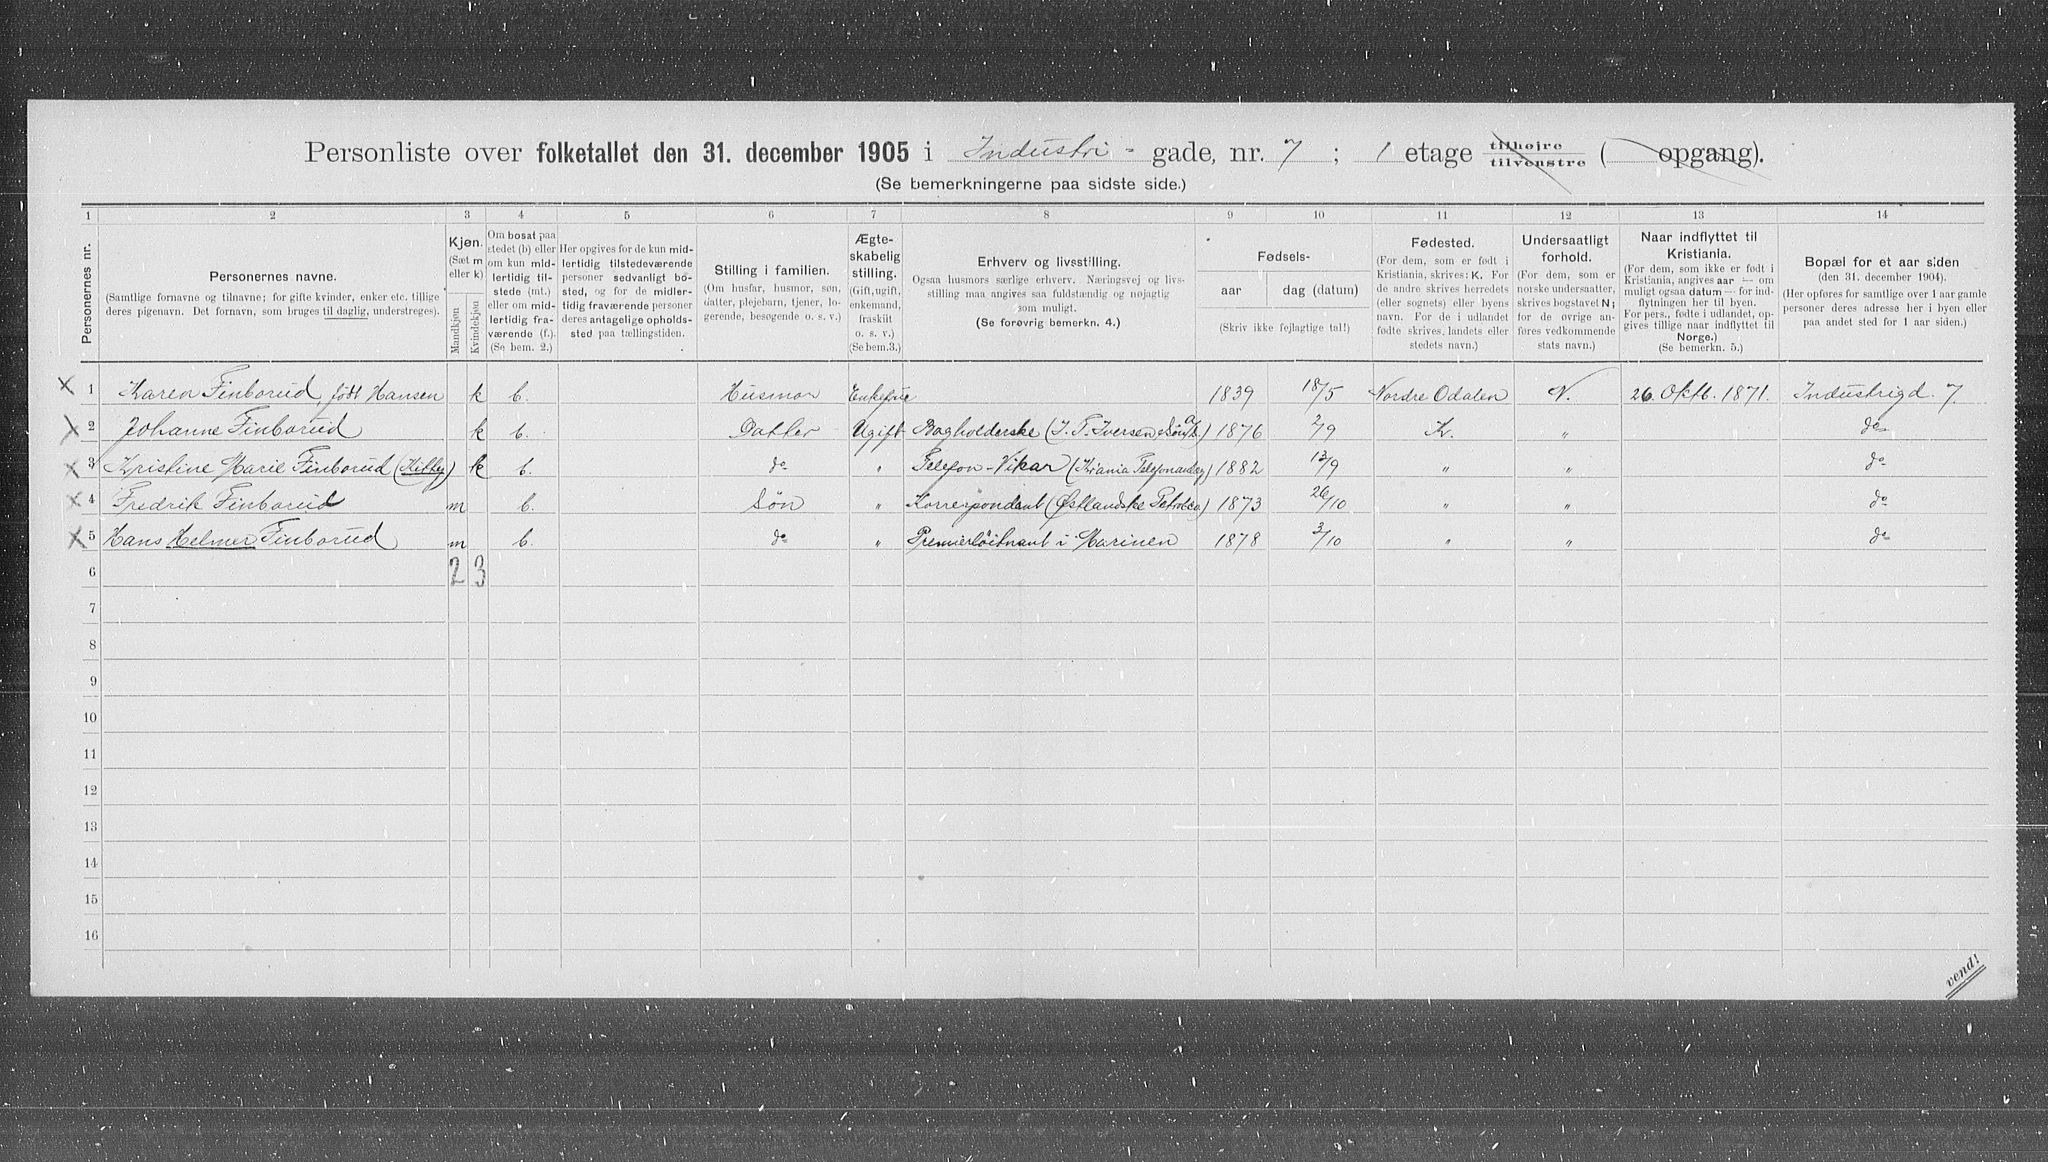 Personliste over folketallet den 31. december 1905 i Industri- gade, nr. 7; 1 etage tilhøjre tilvenstre ( opgang).
(Se bemerkningerne paa sidste side.)
1 2 3 4 5 6 7 8 9 10 11 12 13 14
Personernes nr.
Personernes navne.
(Samtlige fornavne og tilnavne; for gifte kvinder, enker etc. tillige
deres pigenavn. Det fornavn, som bruges til daglig, understreges).
Kjøn.
(Sæt m
eller k).
Mandkjøn
Kvindekjøn
Om bosat paa
stedet (b) eller
om kun mid-
lertidig til-
stede (mt.)
eller om mid-
lertidig fra-
værende (f.).
(Se bem. 2.)
Her opgives for de kun mid-
lertidig tilstedeværende
personer sedvanligt bo-
sted, og for de midler-
tidig fraværende personer
deres antagelige opholds-
sted paa tællingstiden.
Stilling i familien.
(Om husfar, husmor, søn,
datter, plejebarn, tjener, lo-
gerende, besøgende o. s. v.)
Ægte-
skabelig
stilling.
(Gift, ugift,
enkemand,
fraskilt
o. s. v.)
(Se bem.3.)
Erhverv og livsstilling.
Ogsaa husmors særlige erhverv. Næringsvej og livs-
stilling maa angives saa fuldstændig og nøjagtig
som muligt.
(Se forøvrig bemerkn. 4.)
Fødsels-
aar dag (datum)
(Skriv ikke fejlagtige tal!)
Fødested.
(For dem, som er født i
Kristiania, skrives: K. For
de andre skrives herredets
(eller sognets) eller byens
navn. For de i udlandet
fødte skrives landets eller
stedets navn.)
Undersaatligt
forhold.
(For dem, som er
norske undersaatter,
skrives bogstavet N;
for de øvrige an-
føres vedkommende
stats navn.)
Naar indflyttet til
Kristiania.
(For dem, som ikke er født i
Kristiania, angives aar — om
muligt ogsaa datum — for ind-
flytningen her til byen.
For pers., fødte i udlandet, op-
gives tillige naar indflyttet til
Norge.)
(Se bemerkn. 5.)
Bopæl for et aar siden
(den 31. december 1904).
(Her opføres for samtlige over 1 aar gamle
personer deres adresse her i byen eller
paa andet sted for 1 aar siden.)
1 Karen Finborud, født Hansen k b. Husmor Enkefrue 1839 18/5 Nordre Odalen N. 26. Oktb. 1871. Industrigd. 7.
2 Johanne Finborud k b. Datter Ugift Bogholderske (J. T. Iversen & Søn) 1876 2/9 K. " do
3 Kristine Marie Finborud (Kitty) k b. do " Telefon-Vikar (Kr.ania Telefonanlæg) 1882 13/9 " " do
4 Fredrik Finborud m b. Søn " Korrespondent (Østlandske Petrol.co.) 1873 26/10 " " do
5 Hans Helmer Finborud m b. do " Premierløitnant i Marinen 1878 3/10 " " do
6 2 3
7
8
9
10
11
12
13
14
15
16
vend!